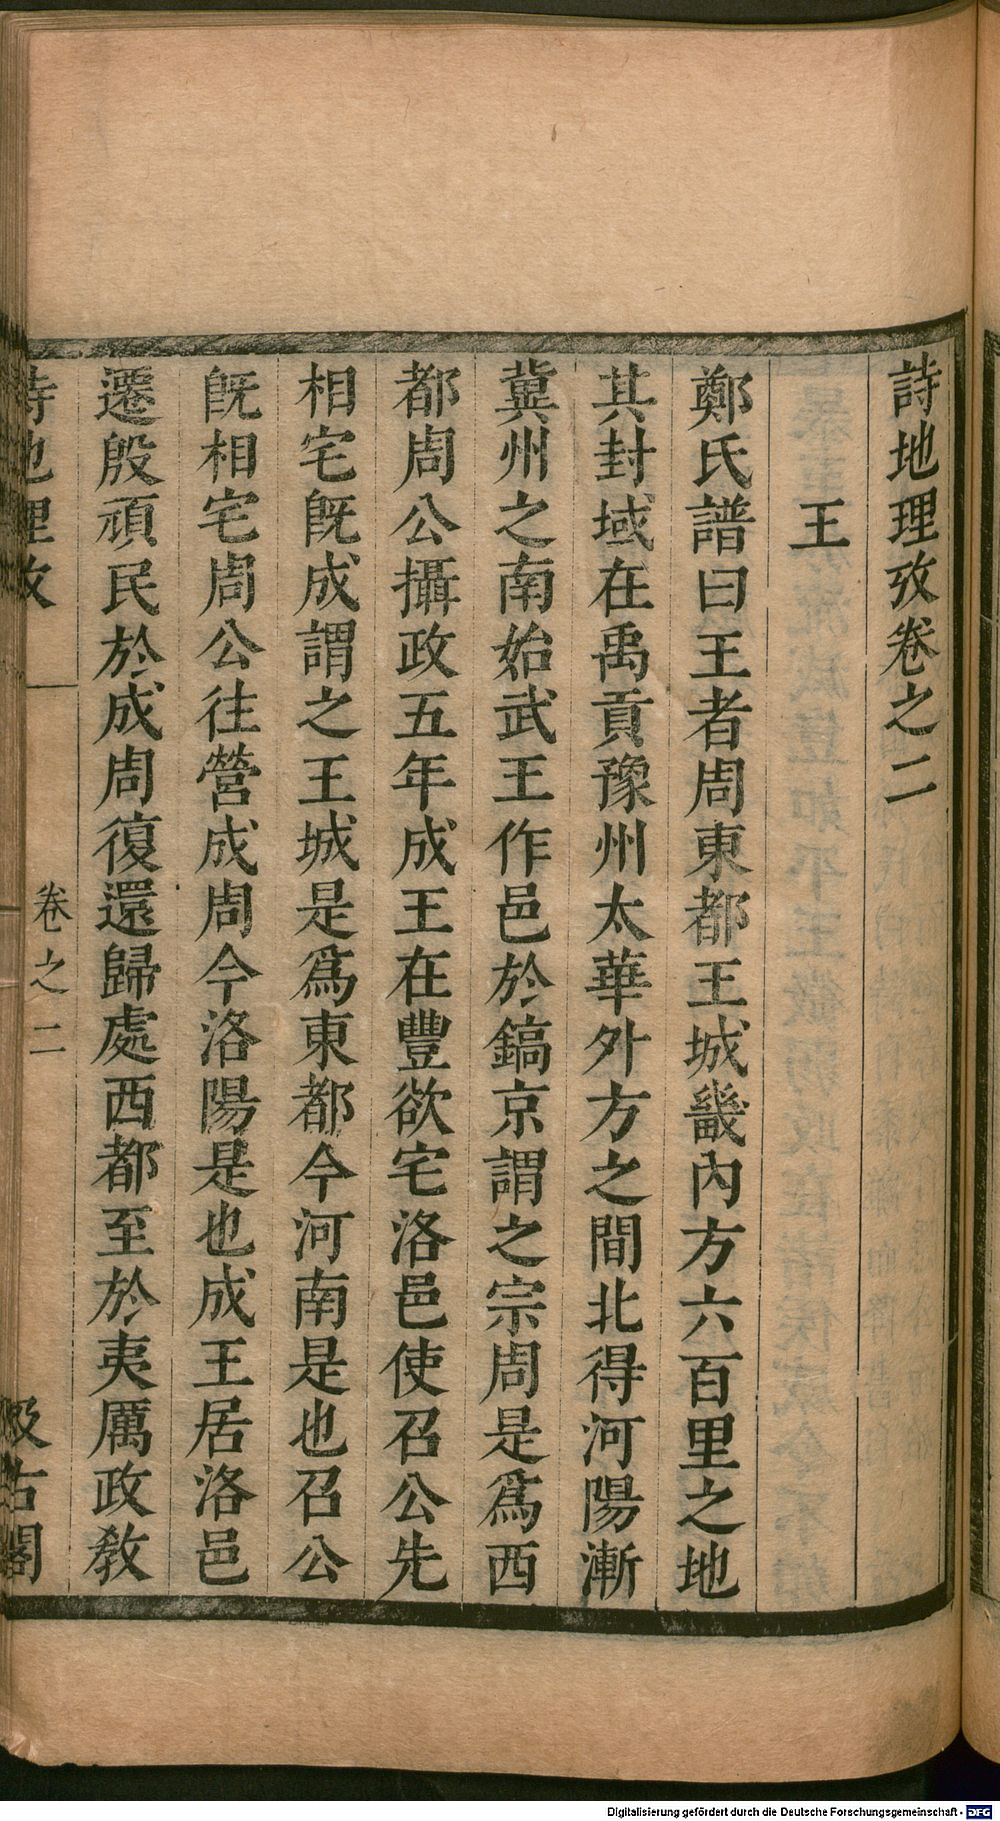 詩地理攷卷之二
王
鄭氏譜曰王者周東都王城畿內方六百里之地
其封域在禹貢豫州太華外方之間北得河陽漸
冀州之南始武王作邑於鎬京謂之宗周是爲西
都周公攝政五年成王在豐欲宅洛邑使召公先
相宅旣成謂之王城是爲東都今河南是也召公
旣相宅周公往營成周今洛陽是也成王居洛邑
遷殷頑民於成周復還歸處西都至於夷厲政敎
詩地理攷
卷之二
汲古閣
Digitalisierung gefördert durch die Deutsche Forschungsgemeinschaft - DFG